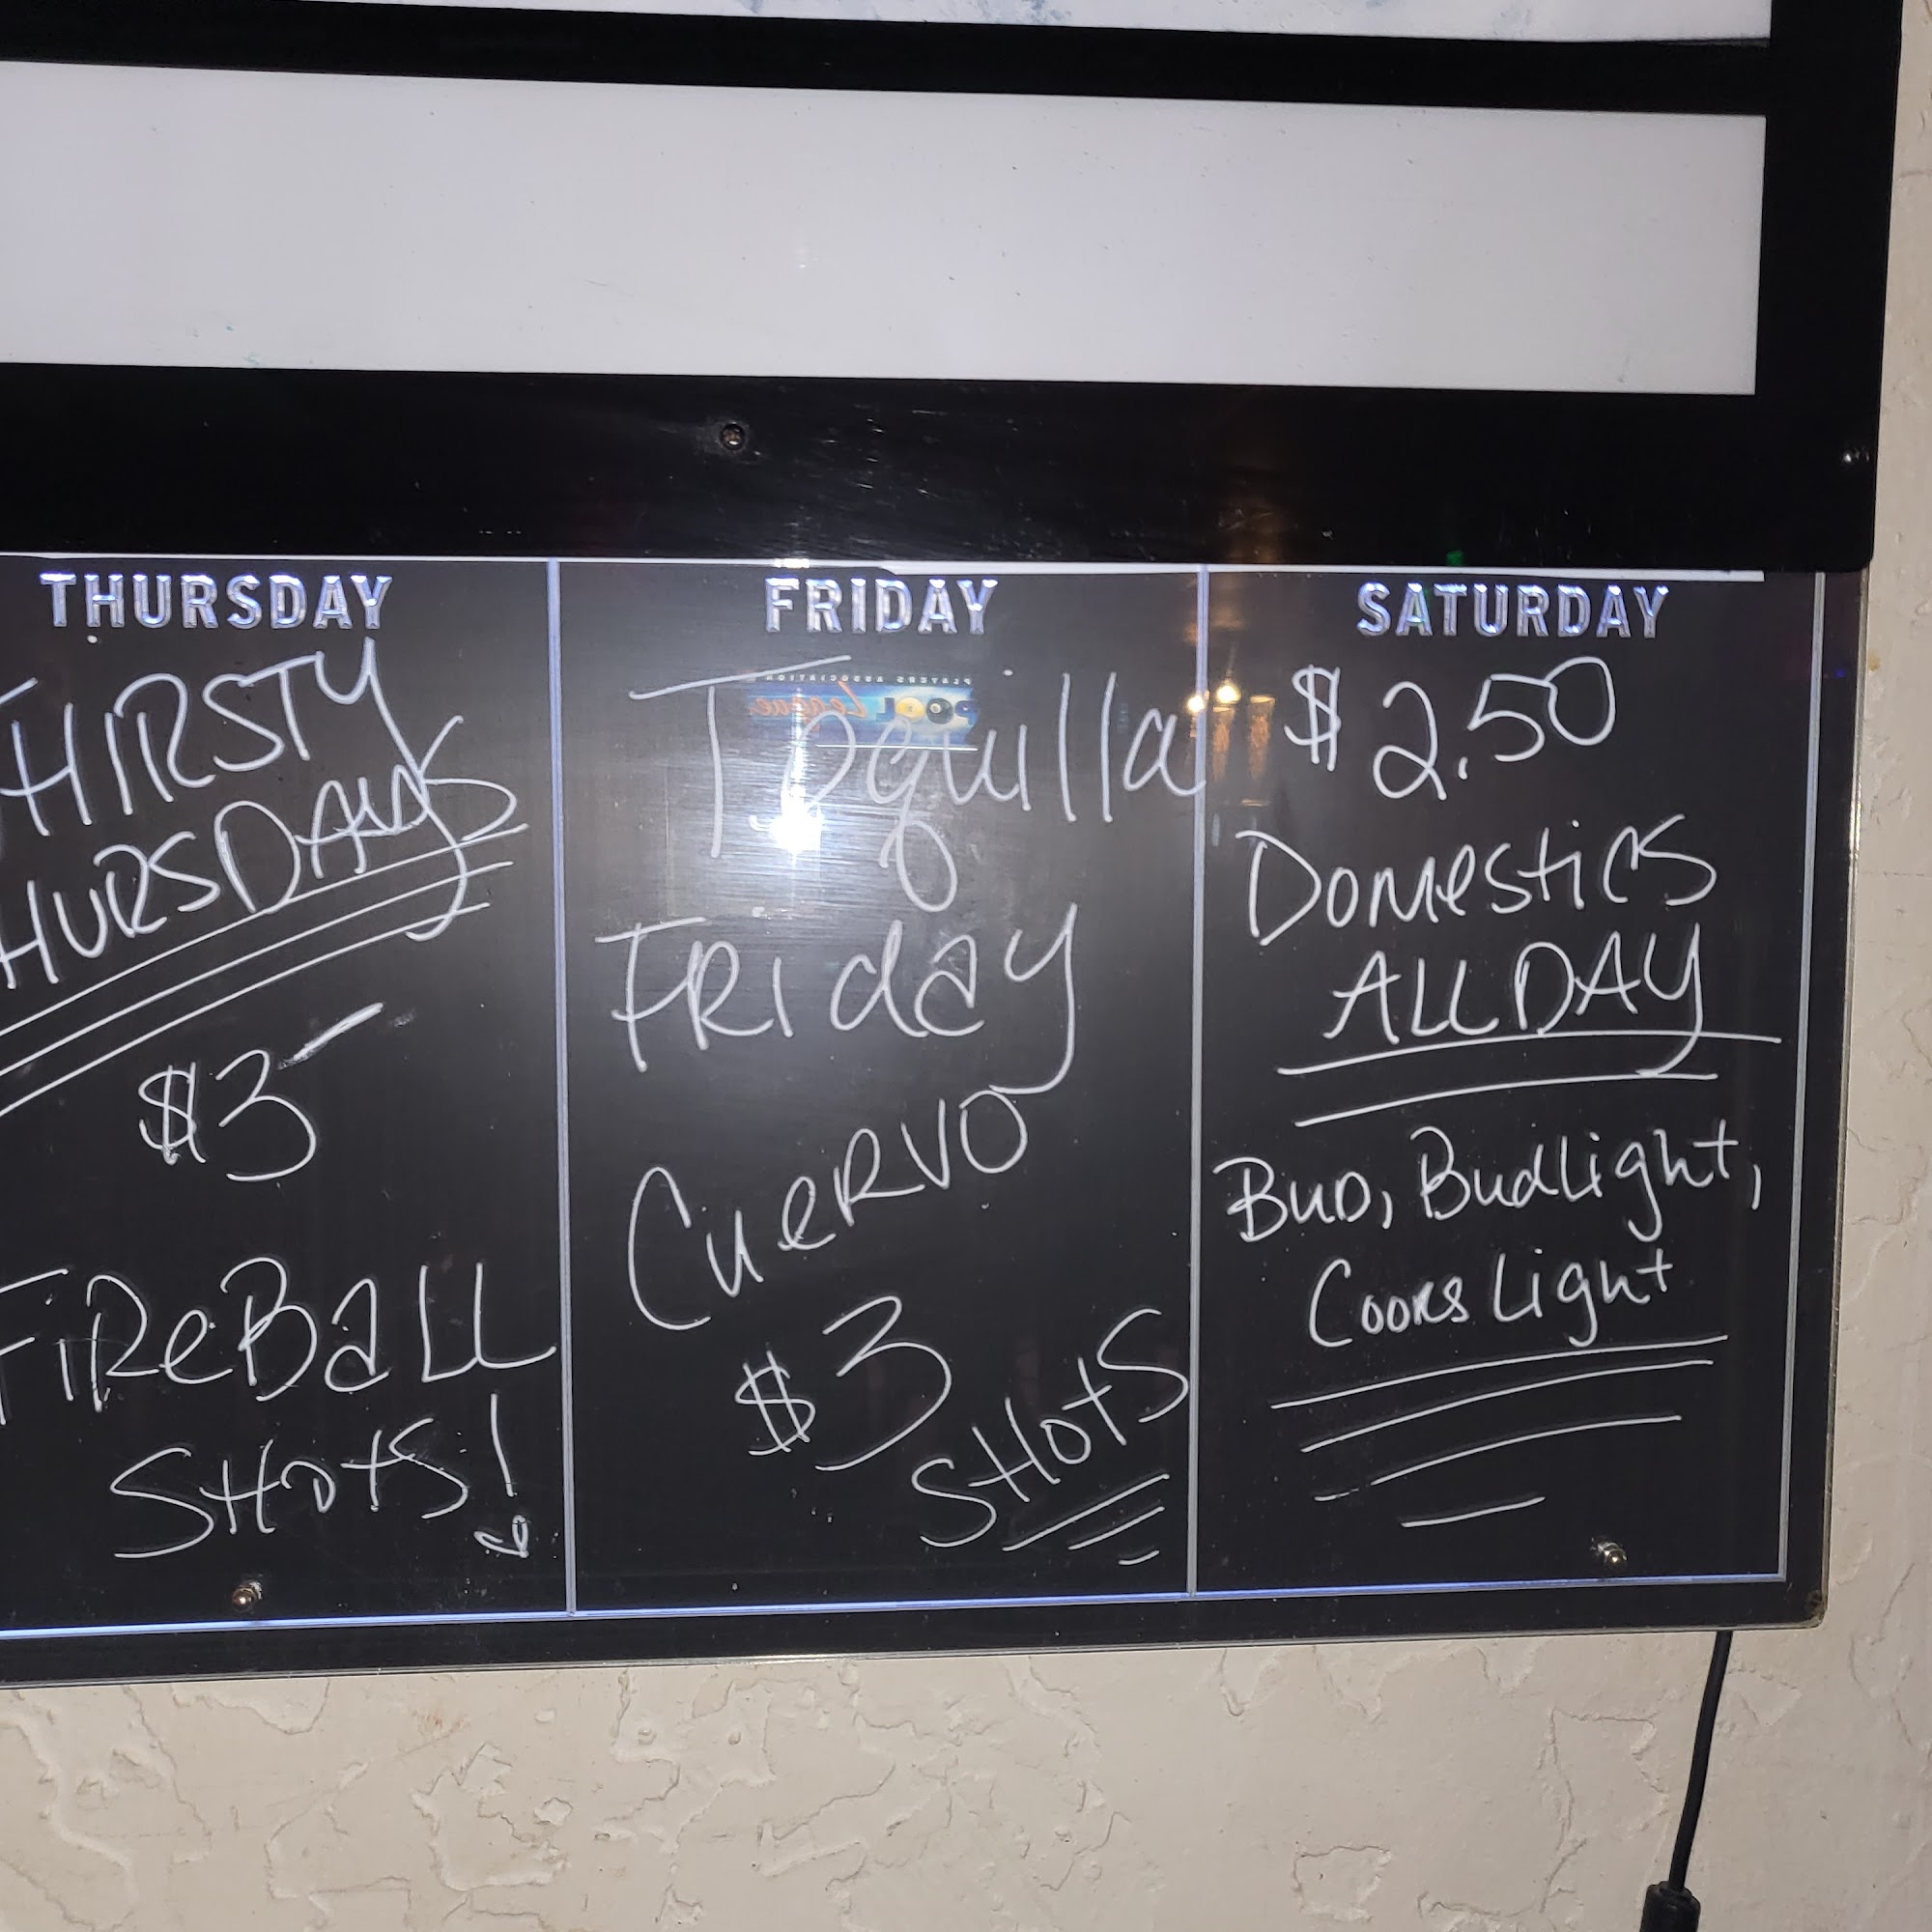 THURSDAY
THIRSTY
HURSDAYS
$3
FIREBALL
SHOTS!
FRIDAY
Tequilla
FRIday
CueRVO
$3
SHOTS
SATURDAY
$2.50
Domestics
ALL DAY
BUD, BudLight,
Coors Light
PLAYERS ASSOCIATION
POOL League